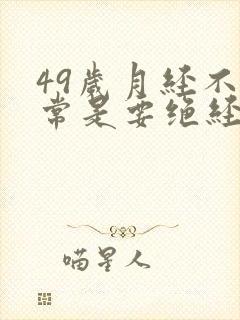 49歲月经不
常是要绝经
喵星人